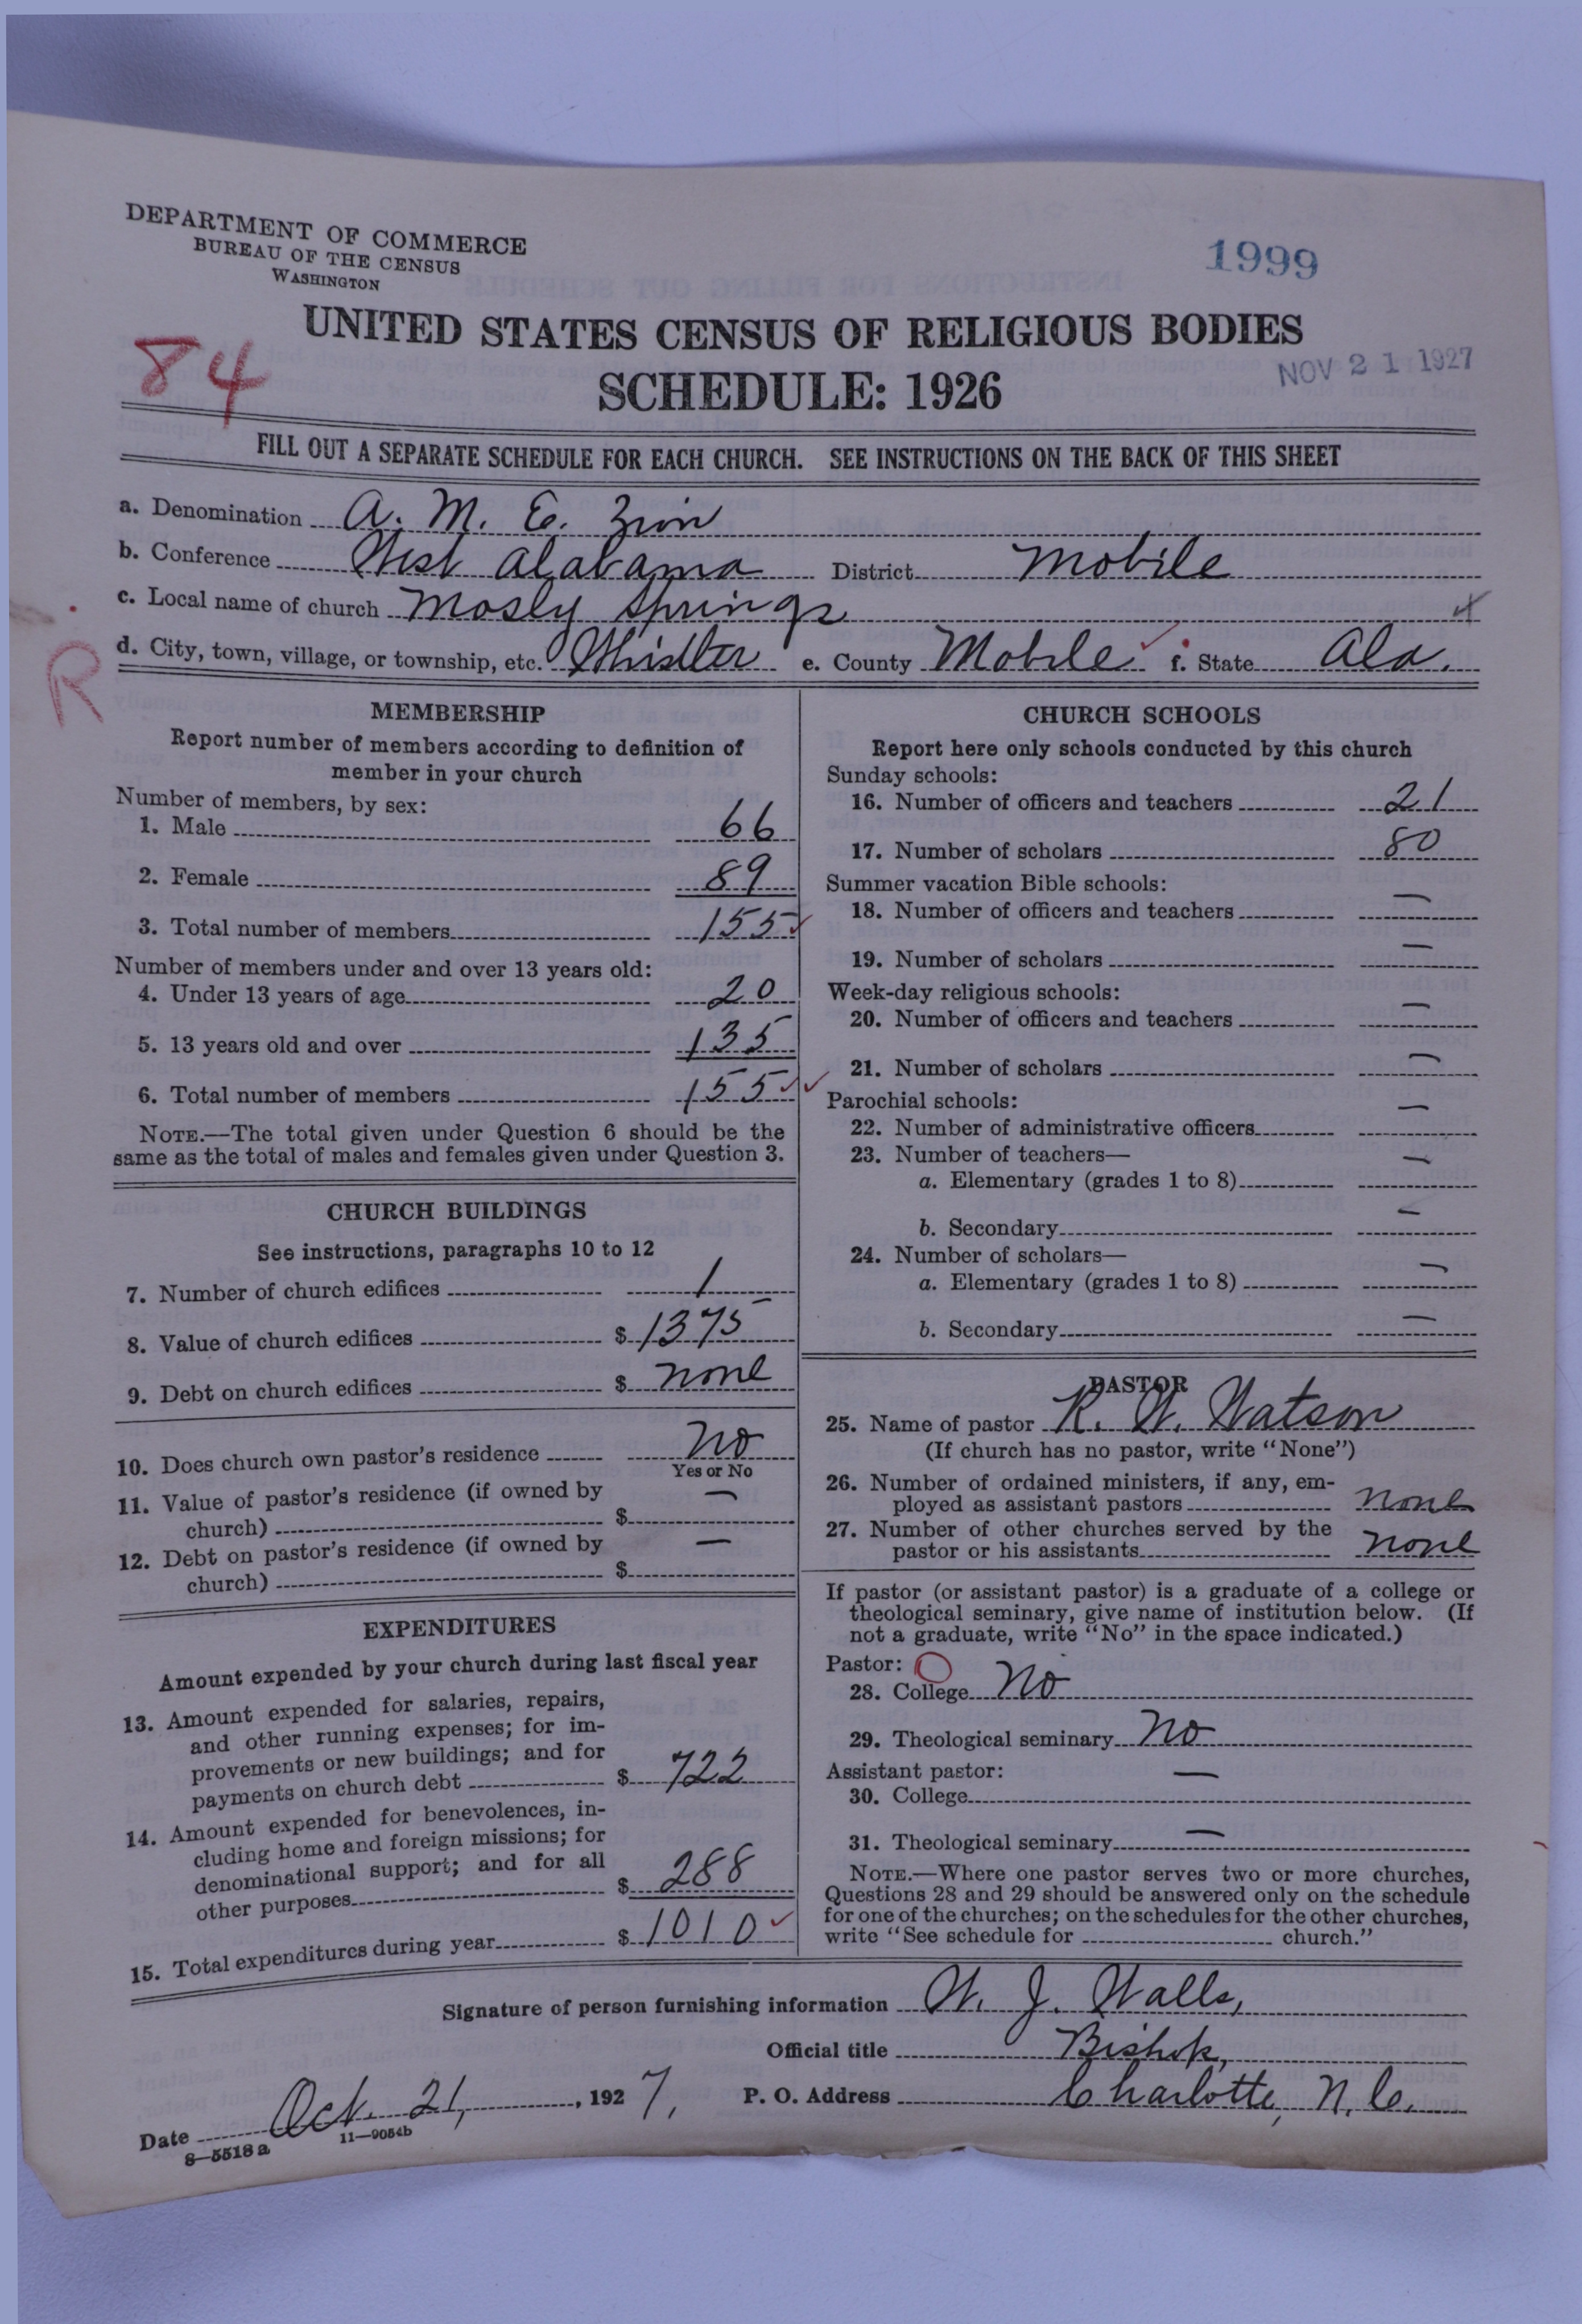 DEPARTMENT OF COMMERCE
BUREAU OF THE CENSUS
WASHINGTON
1999
UNITED STATES CENSUS OF RELIGIOUS BODIES
84
SCHEDULE: 1926
NOV 21 1927
FILL OUT A SEPARATE SCHEDULE FOR EACH CHURCH. SEE INSTRUCTIONS ON THE BACK OF THIS SHEET
a. Denomination A. M. E. Zion
b. Conference West Alabama District Mobile
c. Local name of church Mosly Springs
d. City, town, village, or township, etc. Whistler e. County Mobile f. State Ala.
R
MEMBERSHIP
Report number of members according to definition of
member in your church
Number of members, by sex:
1. Male 66
2. Female 89
3. Total number of members 155
Number of members under and over 13 years old:
4. Under 13 years of age 20
5. 13 years old and over 135
6. Total number of members 155
NOTE.—The total given under Question 6 should be the
same as the total of males and females given under Question 3.
CHURCH BUILDINGS
See instructions, paragraphs 10 to 12
7. Number of church edifices 1
8. Value of church edifices $ 1375
9. Debt on church edifices $ none
10. Does church own pastor's residence No
Yes or No
11. Value of pastor's residence (if owned by
church) $ —
12. Debt on pastor's residence (if owned by
church) $ —
EXPENDITURES
Amount expended by your church during last fiscal year
13. Amount expended for salaries, repairs,
and other running expenses; for im-
provements or new buildings; and for
payments on church debt $ 722
14. Amount expended for benevolences, in-
cluding home and foreign missions; for
denominational support; and for all
other purposes $ 288
15. Total expenditures during year $ 1010
CHURCH SCHOOLS
Report here only schools conducted by this church
Sunday schools:
16. Number of officers and teachers 21
17. Number of scholars 80
Summer vacation Bible schools:
18. Number of officers and teachers —
19. Number of scholars —
Week-day religious schools:
20. Number of officers and teachers —
21. Number of scholars —
Parochial schools:
22. Number of administrative officers —
23. Number of teachers—
a. Elementary (grades 1 to 8) —
b. Secondary —
24. Number of scholars—
a. Elementary (grades 1 to 8) —
b. Secondary —
PASTOR
25. Name of pastor R. W. Watson
(If church has no pastor, write "None")
26. Number of ordained ministers, if any, em-
ployed as assistant pastors none
27. Number of other churches served by the
pastor or his assistants none
If pastor (or assistant pastor) is a graduate of a college or
theological seminary, give name of institution below. (If
not a graduate, write "No" in the space indicated.)
Pastor:
28. College No
29. Theological seminary No
Assistant pastor:
30. College —
31. Theological seminary —
NOTE.—Where one pastor serves two or more churches,
Questions 28 and 29 should be answered only on the schedule
for one of the churches; on the schedules for the other churches,
write "See schedule for church."
Signature of person furnishing information W. J. Walls,
Official title Bishop,
Date Oct. 21, 1927, P. O. Address Charlotte, N. C.
8—5518 a 11—9054b